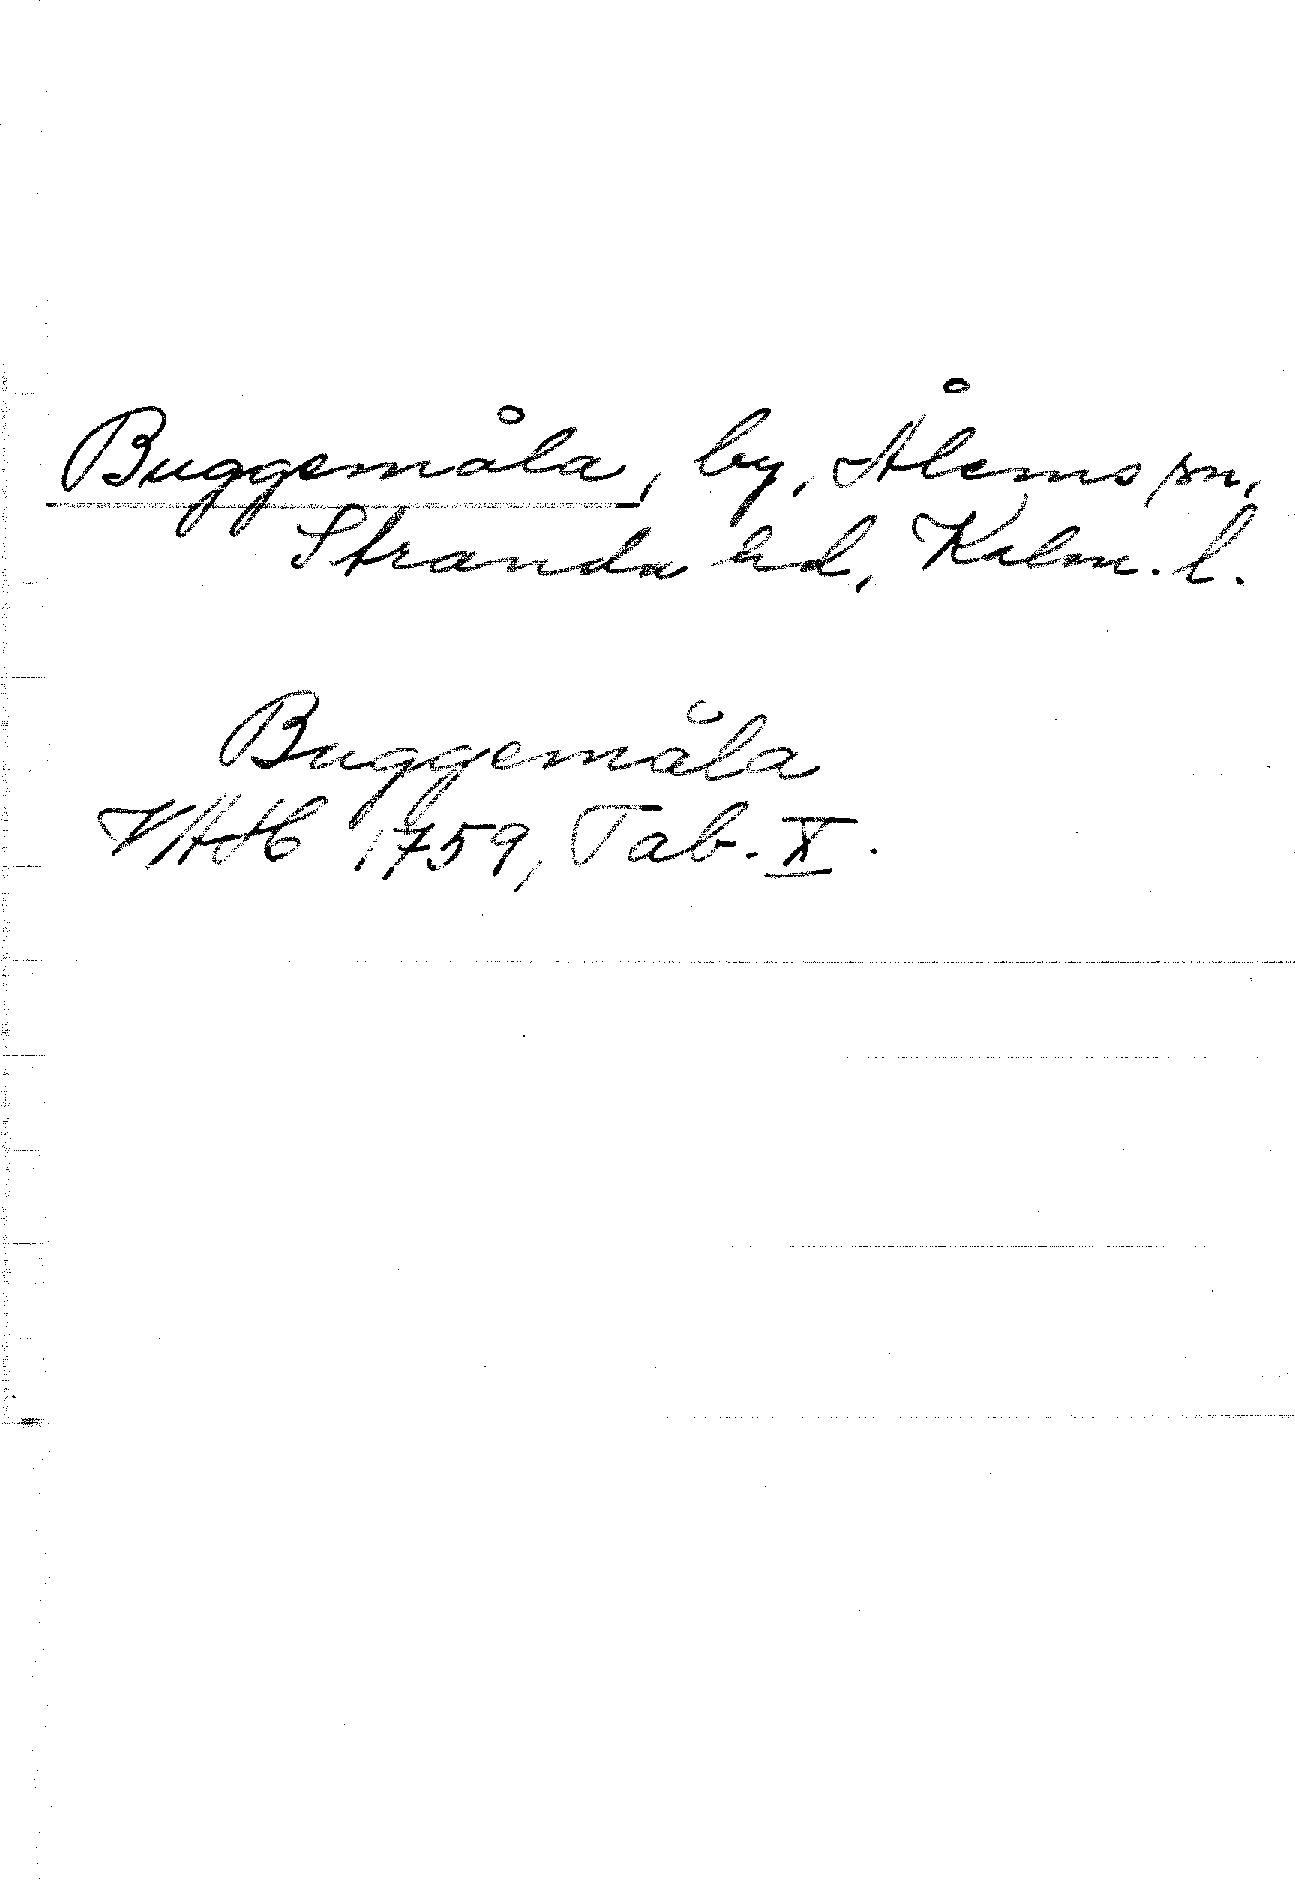 Buggemåla, by, Ålems sn,
Stranda hd, Kalm. l.
Buggemåla
VAH 1759, Tab. X.